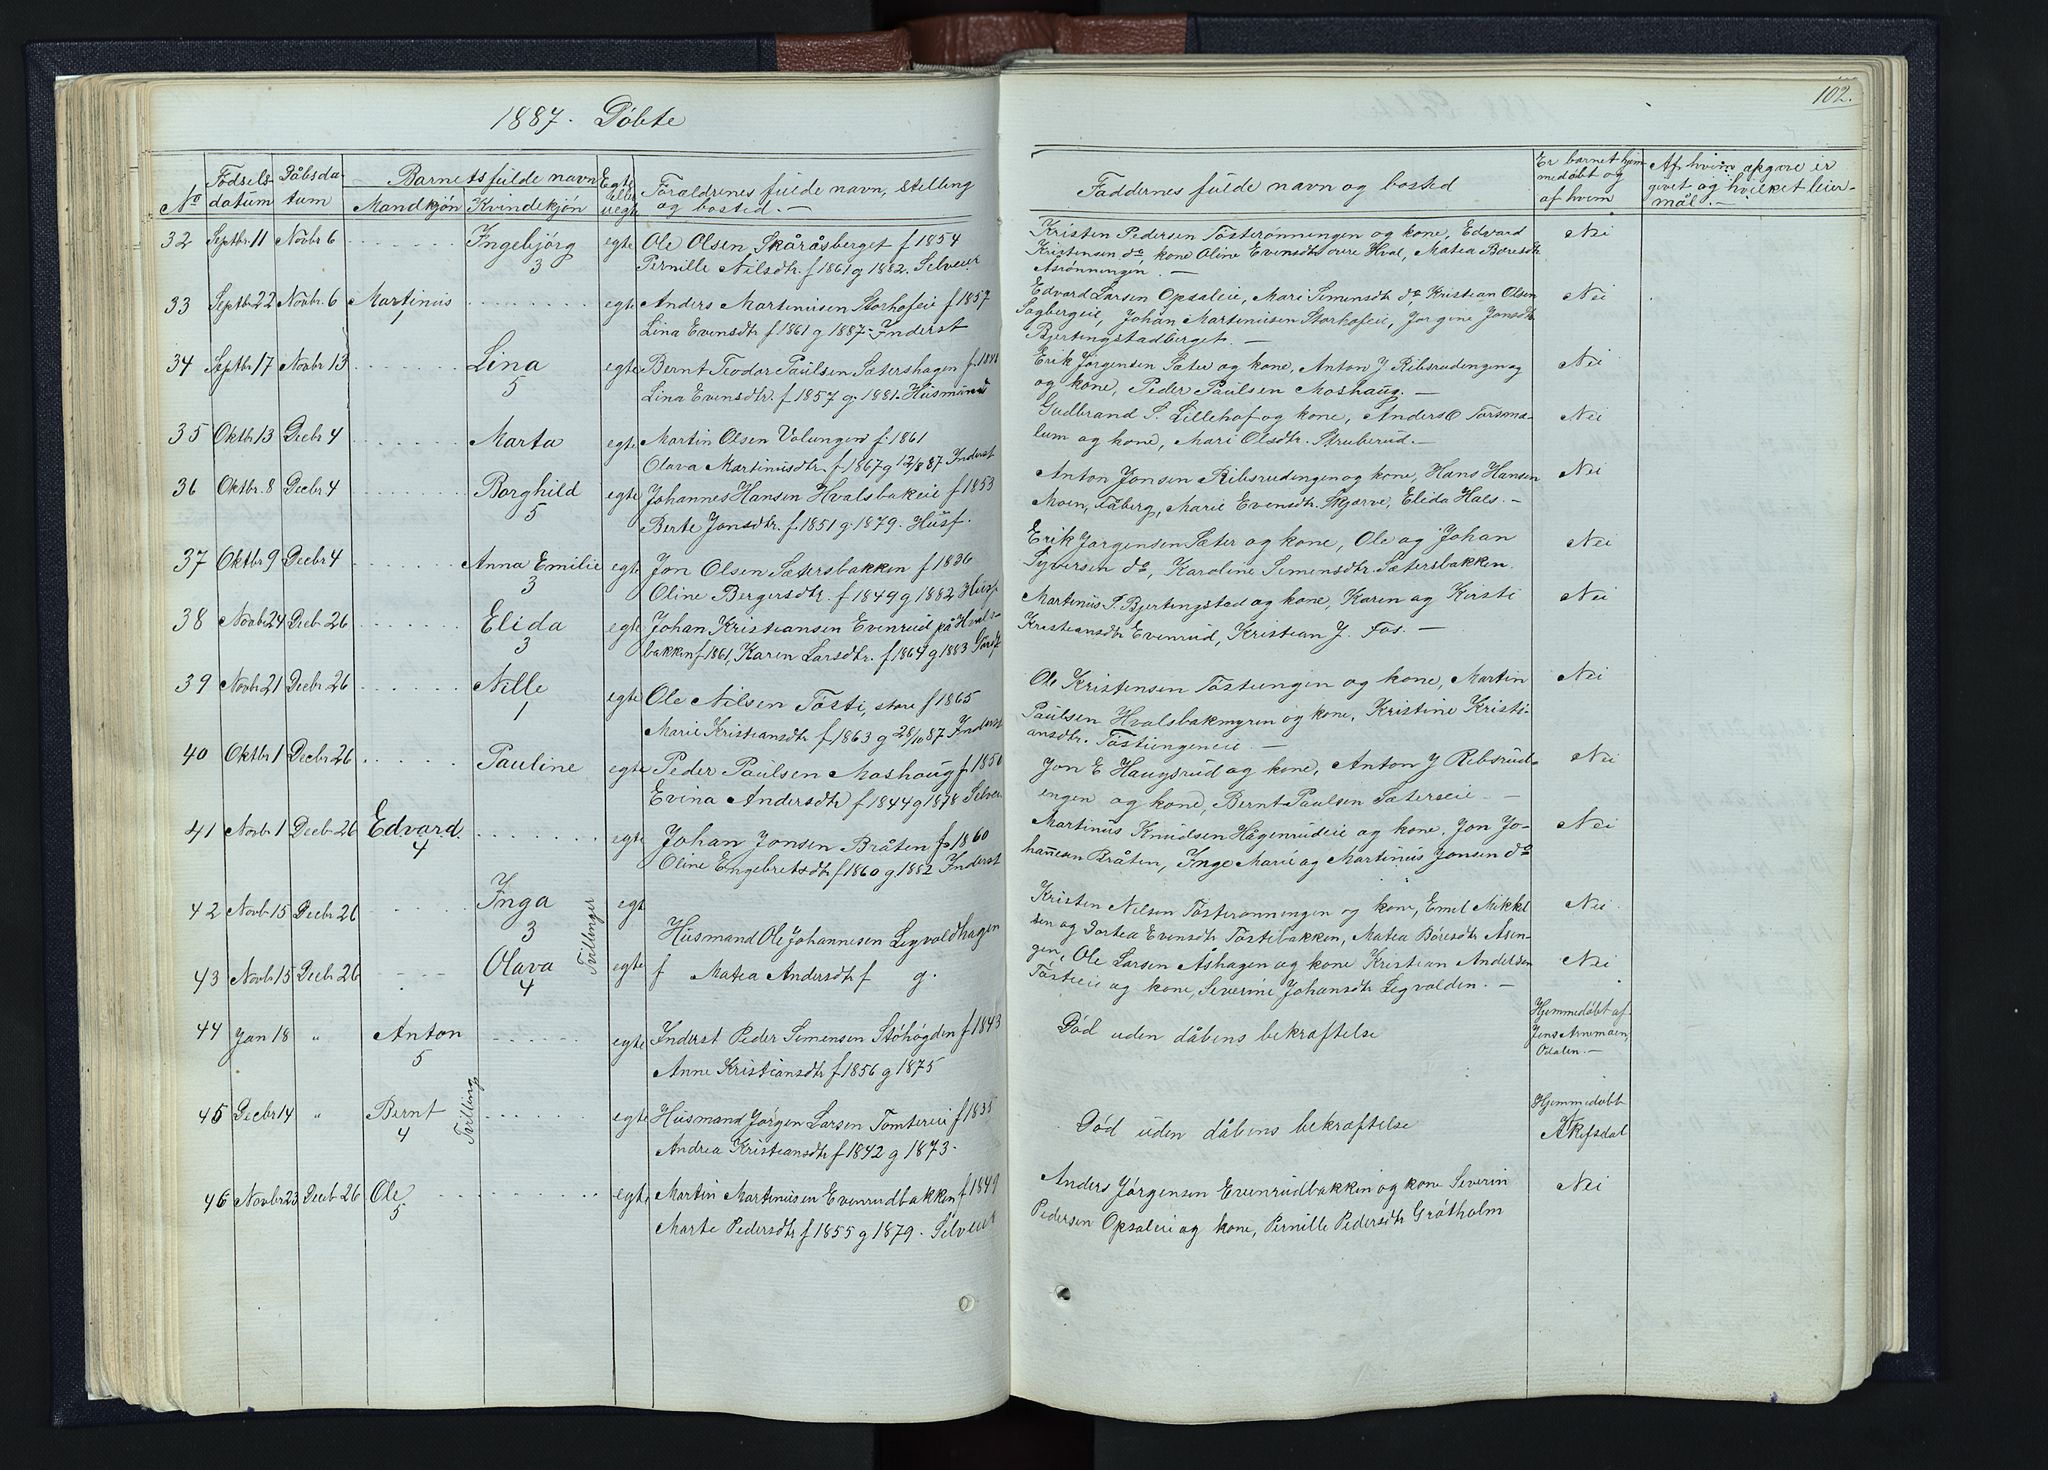 1887. Döbte
No
Födselsdatum
Dåbsdatum
Barnets fulde navn
Mandkjön Kvindekjön
Egte eller uegte
Foraldrenes fulde navn, stelling
og bosted. —
32 Septbr. 11 Novbr 6 Ingebjörg 3 egte Ole Olsen Skåråsberget f 1854
Pernille Nilsdtr. f 1861 g 1882. Selveier
33 Septbr 22 Novbr. 6 Martinus 1 egte Anders Martinusen Storhofeie f 1857
Lina Evensdtr f 1861 g 1887 - Inderst
34 Septbr 17 Novbr 13 Lina 5 egte Bernt Teodor Paulsen Sætershagen f 1848
Lina Evensdtr. f 1857 g. 1881. Husmand
35 Oktbr. 13 Decbr 4 Marta egte Martin Olsen Volungen f. 1861
Olava Martinusdtr. f 1867 g 12/8 87 Inderst
36 Oktbr. 8 Decbr 4 Borghild 5 egte Johannes Hansen Hvalsbakeie f 1853
Berte Jonsdtr. f 1851 g. 1879. Husf.
37 Oktbr 9 Decbr 4 Anna Emilie 3 egte Jon Olsen Sætersbakken f 1836
Oline Bergersdtr. f 1849 g 1882 Husf
38 Novbr 24 Decb 26 Elida 3 egte Johan Kristiansen Evenrud på Hvals-
bakken f 1861, Karen Larsdtr. f 1864 g 1883
39 Novbr. 21 Decbr 26 Nille 1 egte Ole Nilsen Tösti, store f 1865
Marie Kristiansdtr f 1863 g 28/10 87 Inderst
40 Oktbr 1 Decbr 26 Pauline egte Peder Paulsen Moshaug f 1850
Evina Andersdtr f 1844 g 1878 Selveier
41 Novbr 1 Decb 26 Edvard 4 egte Johan Jonsen Bråten f 1860
Oline Engebretsdtr f 1860 g 1882 Inderst
42 Novb 15 Decbr 26 Inga 3 Tvillinger egt
Husmand Ole Johannesen Legvoldhagen
43 Novbr 15 Decbr 26 Olava 4 egte f Matea Andersdtr f g.
44 Jan 18 " Anton 5 egte Inderst Peder Semensen Stöhögden f 1843
Anne Kristiansdtr f 1856 g 1875
45 Decbr 14 " Bernt 4 Tvilling egte Husmand Jørgen Larsen Tomtereie f 1835
Andrea Kristiansdtr f 1842 g 1873.
46 Novbr 23 Decb 26 Ole 5 egte Martin Martinusen Evenrudbakken f 1849
Marte Pedersdtr f 1855 g 1879. Selveier
102.
Faddernes fulde navn og bosted
Er barnet hjem
medöbt og
af hvem
Af hvem opgave er
givet og hvilket leier-
mål. —
Kristen Pedersen Tösterønningen og kone, Edvard Nei
Kristensen do kone Oline Evensdtr overe Hval, Matea Boresdtr
Asrønningen. —
Edvard Larsen Opsaleie, Mari Semensdtr do Kristian Olsen Nei
Sagbergeie, Johan Martinusen Storhofeie, Jorgine Jonsdtr
Bjertingstadberget. —
Erik Jørgensen Sæter og kone, Anton J Ribsrudengen og Nei
og kone, Peder Paulsen Moshaug. —
Gudbrand P. Lillehof og kone, Anders O Torsma- Nei
lum og kone, Mari Olsdtr. Struberud. —
Anton Jonsen Ribsrudengen og kone, Hans Hansen Nei
Moen, Fåberg, Marie Evensdtr. Skjærve, Elida Hals. —
Erik Jørgensen Sæter og kone, Ole og Johan Nei
Syversen do, Karoline Semensdtr. Sætersbakken.
Martinus P. Bjertingstad og kone, Karen og Kirsti Nei
Kristiansdtr Evenrud, Kristian J. Fos. —
Ole Kristensen Töstiengen og kone, Martin Nei
Paulsen Hvalsbakmyren og kone, Kristine Kristi-
ansdtr. Töstiengeneie. —
Jon E Haugsrud og kone, Anton J Ribsrud- Nei
engen og kone, Bernt Paulsen Sæterseie. —
Martinus Knudsen Hågenrudeie og kone. Jon Jo- Nei
hannesen Bråten, Inge Marie og Martinus Jonsen do
Kristen Nilsen Tösterønningen og kone, Emil Mikkel Nei
sen og Dortea Evensdtr Töstibakken, Matea Böresdtr Asen-
gen, Ole Larsen Åshagen og kone Kristian Andersen Nei
Töstieie og kone, Severine Johansdtr Legvolden. —
Död uden dåbens bekraftelse Hjemmedöbt af
Jens Arnemoen,
Odalen. —
Död uden dåbens bekræftelse Hjemmedöbt
af
A Kefsdal
Anders Jørgensen Evenrudbakken og kone Severin Nei
Pedersen Opsaleie og kone, Pernille Pedersdtr Gråtholm